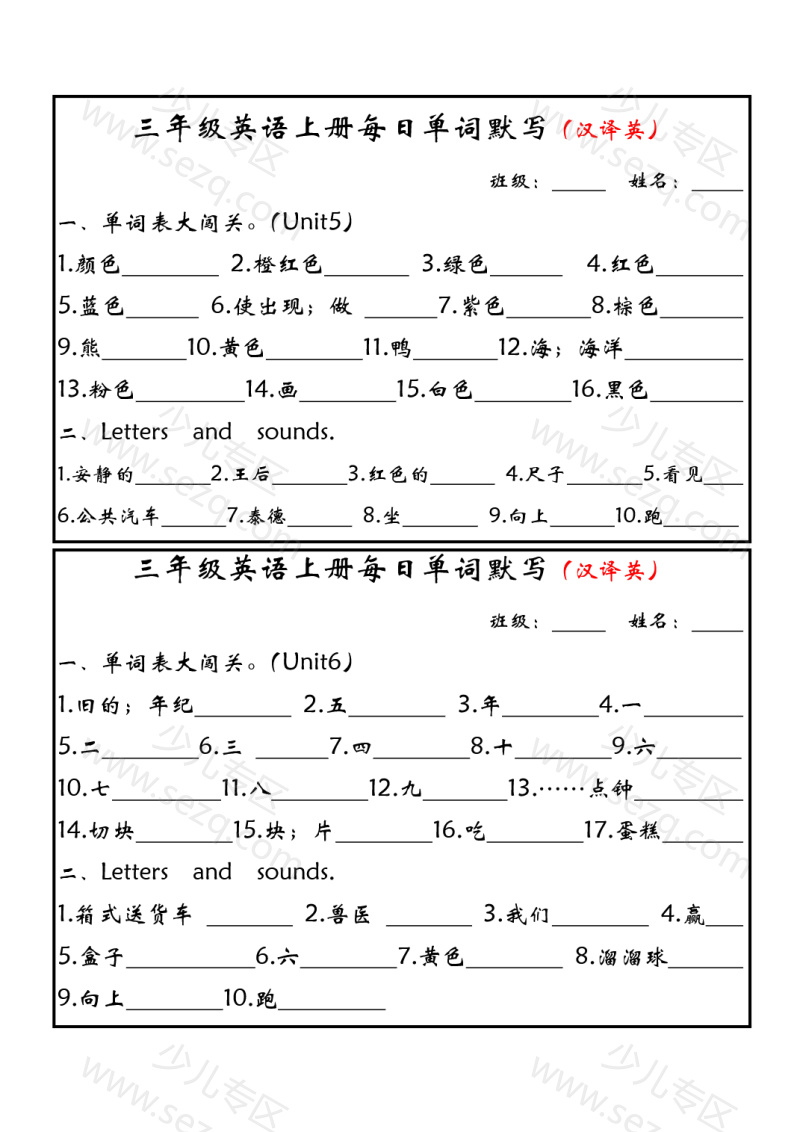 三年级英语上册每日单词默写（汉译英）
班级：_____ 姓名：_____
一、单词表大闯关。（Unit5）
1.颜色________ 2.橙红色_______ 3.绿色______ 4.红色_______
5.蓝色______ 6.使出现；做 ______7.紫色_______8.棕色_______
9.熊_______10.黄色________11.鸭_______12.海；海洋__________
13.粉色_________14.画________15.白色________16.黑色________
二、Letters and sounds.
1.安静的_______2.王后_______3.红色的______ 4.尺子_______5.看见____
6.公共汽车______7.泰德______ 8.坐_______ 9.向上______10.跑_______
三年级英语上册每日单词默写（汉译英）
班级：_____ 姓名：_____
一、单词表大闯关。（Unit6）
1.旧的；年纪________ 2.五________ 3.年________4.一________
5.二________6.三 ______7.四________8.十________9.六_______
10.七_________11.八________12.九_______13.……点钟_________
14.切块________15.块；片________16.吃________17.蛋糕_______
二、Letters and sounds.
1.箱式送货车 _______ 2.兽医 _______ 3.我们________ 4.赢___
5.盒子___________6.六________7.黄色________ 8.溜溜球______
9.向上________10.跑_________
少儿专区
www.sezq.com
少儿专区
www.sezq.com
少儿专区
www.sezq.com
少儿专区
www.sezq.com
少儿专区
www.sezq.com
少儿专区
www.sezq.com
少儿专区
www.sezq
少儿专区
www.sezq